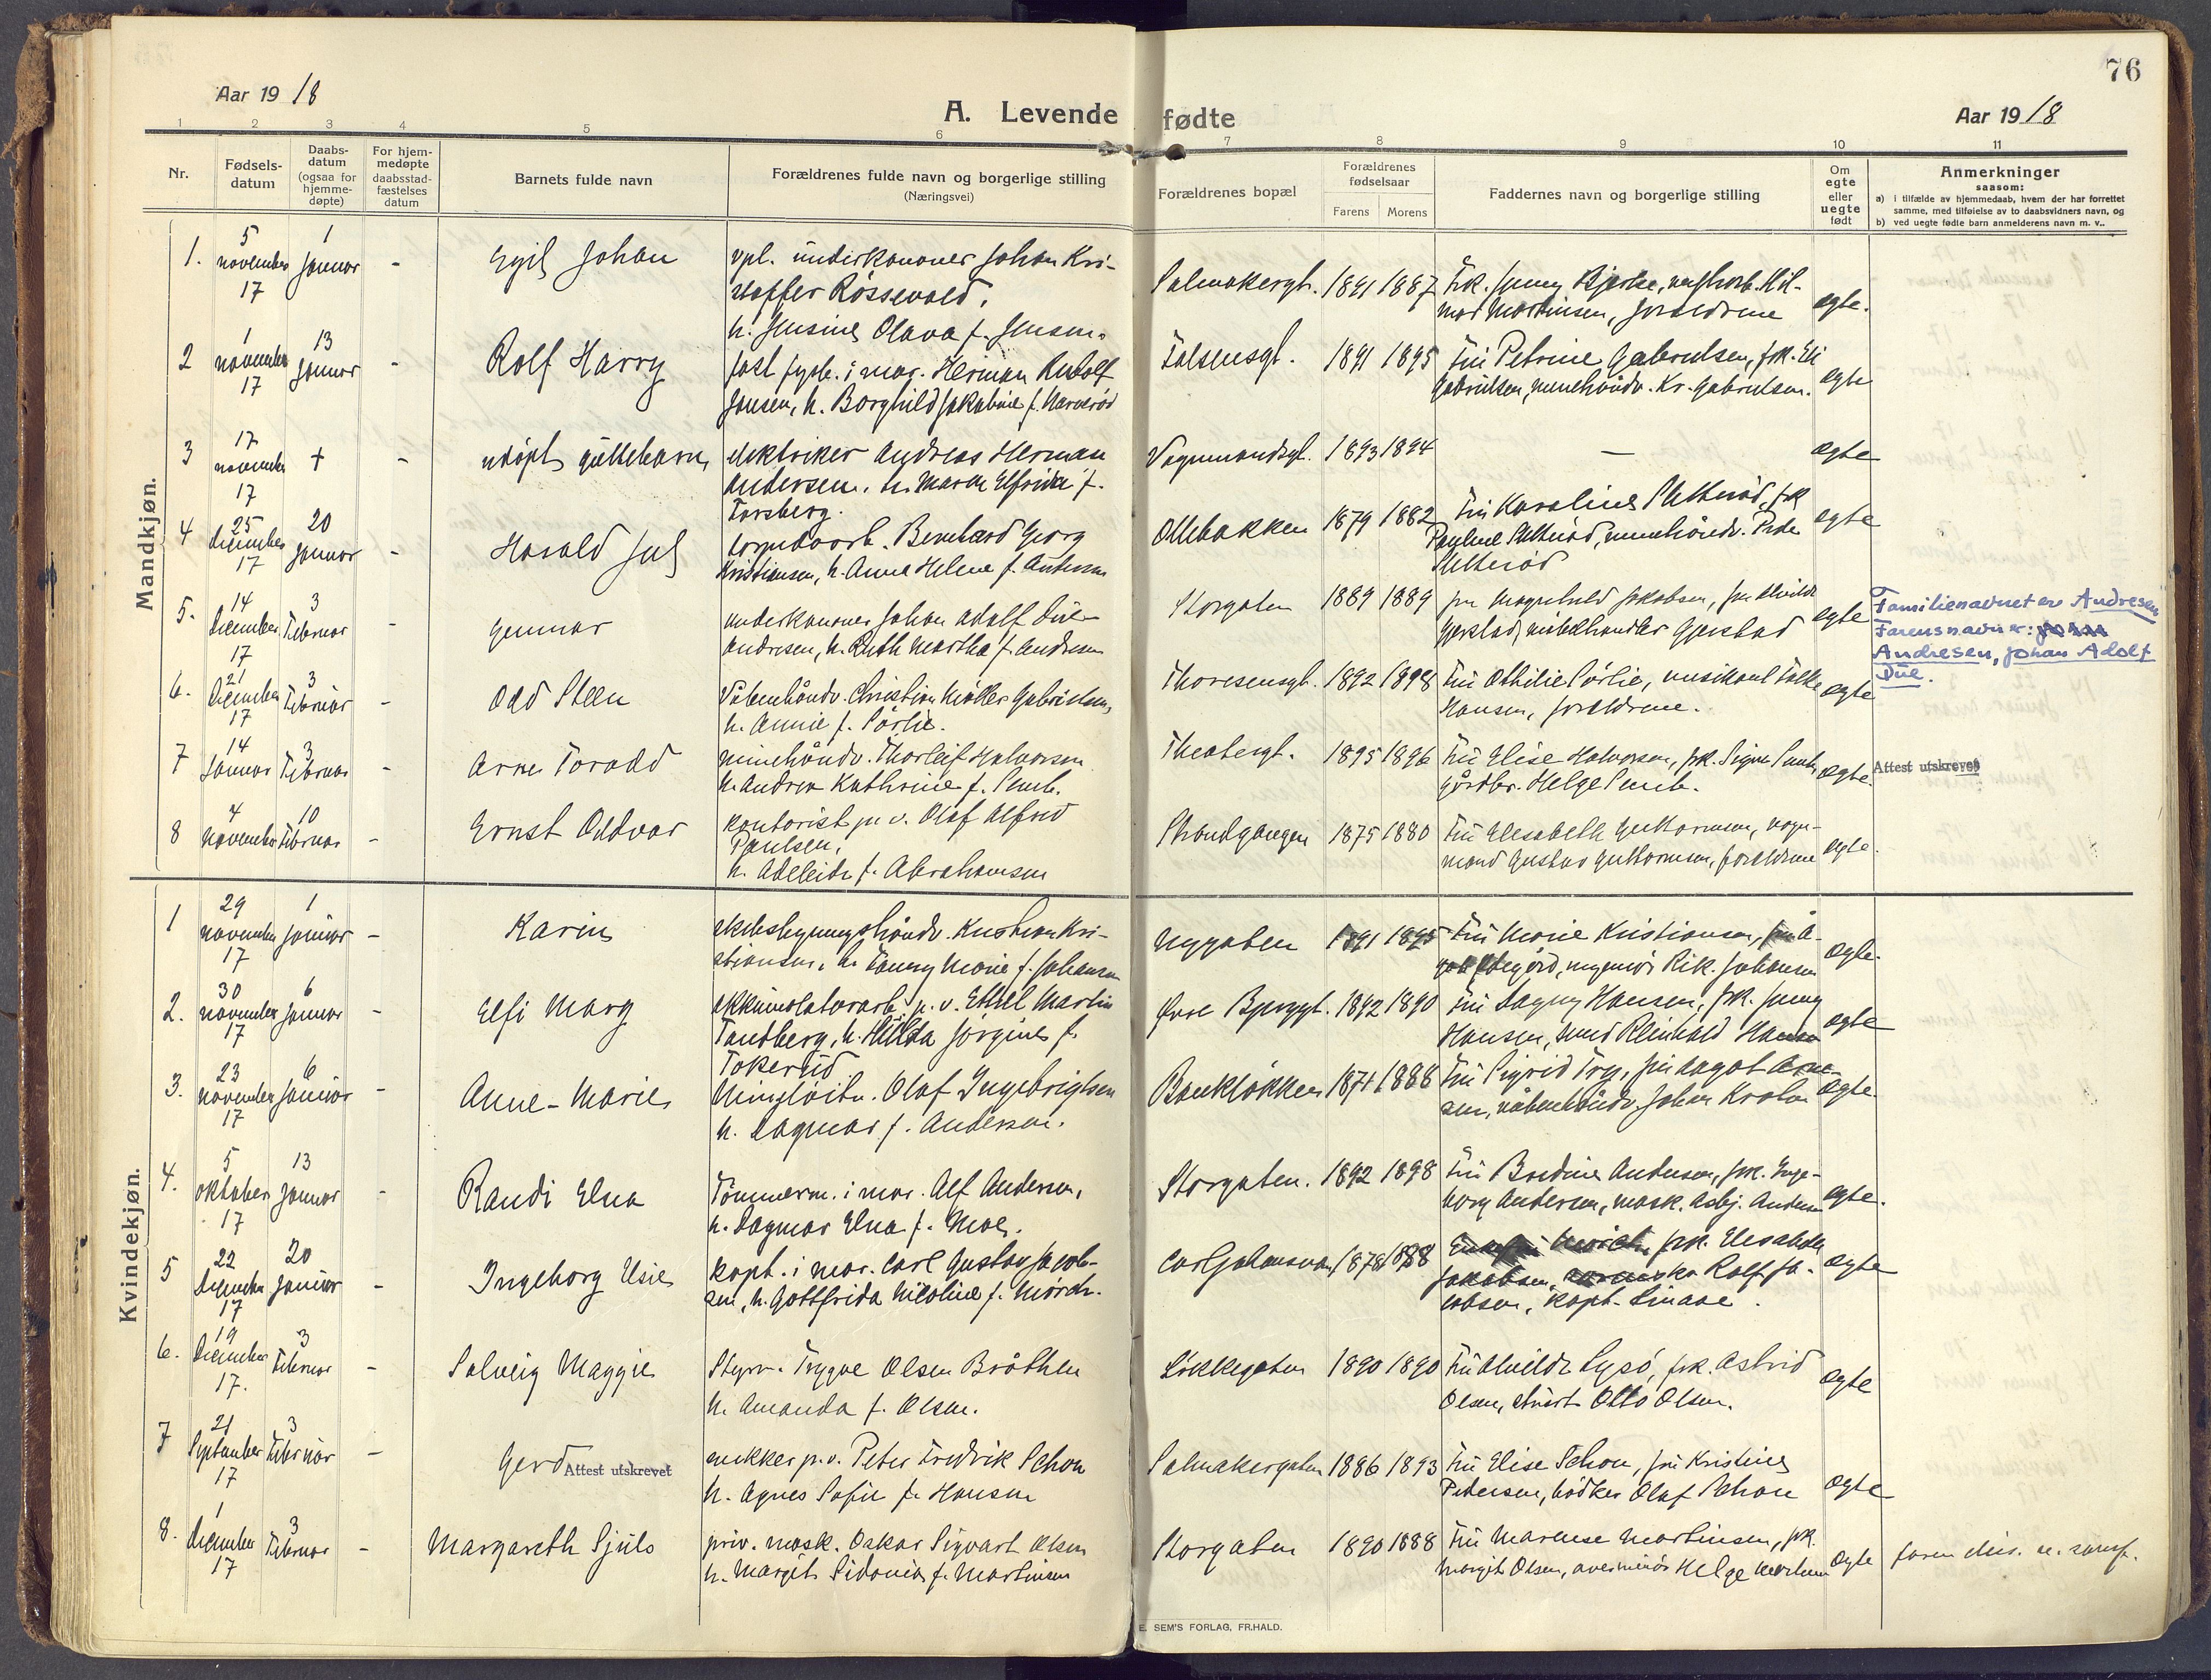 76
Aar 1918
A. Levende fødte
Aar 1918
1 2 3 4 5 6 7 8 9 10 11
Nr.
Fødsels-
datum
Daabs-
datum
(ogsaa for
hjemme-
døpte)
For hjem-
medøpte
daabsstad-
fæstelses
datum
Barnets fulde navn
Forældrenes fulde navn og borgerlige stilling
(Næringsvei)
Forældrenes bopæl
Forældrenes
fødselsaar
Farens Morens
Faddernes navn og borgerlige stilling
Om
egte
eller
uegte
født
Anmerkninger
saasom:
a) i tilfælde av hjemmedaab, hvem der har forrettet
samme, med tilføielse av to daabsvidners navn, og
b) ved uegte fødte barn anmelderens navn m. v..
Mandkjøn.
1. 5 november 17 1 januar - Egil Johan
vpl. underkanoner Johan Kri-
stoffer Rössevold,
h. Jensine Olava f. Jensen.
1891 1887
Frk. Jenny Bjerke, Hil-
mar Martinsen, forældrene
egte.
2 1 november 17 13 januar - Rolf Harry
fast fyrb. i mar. Herman Rudolf
Jansen, h. Borghild Jakobine f. Narverød
Falsensgt. 1891 1895
Fru Petrine Gabrielsen, frk. Eli
Gabrielsen, minehåndv. Kr. Gabrielsen.
egte
3 17 november 17 + - udöpt guttebarn
elektriker Andreas Herman
Andersen, h. Maren Elfrida f.
Torsberg.
Vognmandsgt. 1893 1894 — egte
4 25 december 17 20 januar - Harald Jul
torpedoarb. Bernhard Georg
Kristiansen, h. Anna Helene f. Andersen
Ollebakken 1879 1882
Fru Karoline Sletterød, frk
Pauline Sletterød, minehåndv. Peder
Sletterød
egte
5. 14 December 17 3 Februar Gunnar
underkanoner Johan Adolf Due
Andresen, h. Ruth Martha f. Andresen
Storgaten 1889 1889
fru Magnhild Jakobsen, fru Alvilde
Gjerstad, møbelhandler Gjerstad
egte
Familienavnet er Andresen
Farens navn er:
Andresen, Johan Adolf
Due.
6. 21 December 17 3 Februar Odd Steen
Våbenhåndv. Christian Möller Gabrielsen,
h. Annie f. Sörlie.
Thoresensgt. 1892 1898
Fru Othilie Sörlie, musikant Falke
Hansen, forældrene.
egte
7 14 Januar 3 Februar - Arne Torodd
minehåndv. Thorleif Halvorsen
h. Andrea Kathrine f. Semb.
Theatergt. 1895 1896
Fru Elise Halvorsen, frk. Signe Semb,
gårdbr. Helge Semb.
egte.
Attest utskrevet
8 4 november 10 Februar - Ernst Oddvar
kontorist p. v. Olaf Alfred
Paulsen,
h. Adeleide f. Abrahamsen
Strandgangen 1875 1880
Fru Elisabeth Guttormsen, vogn-
mand Gustav Guttormsen, forældrene
egte.
Kvindekjøn.
1 29 november 17 1 januar - Karin
skibsbygningshåndv. Kristian Kri-
stiansen, h. Fanny Marie f. Johansen
Nygaten 1891 1895
Fru Marie Kristiansen,
ingeniör Rik. Johansen
egte.
2. 30 november 17 6 januar - Elfi Marg
akkumulatorarb. p. v. Ethel Martin
Tandberg, h. Hilda Jörgine f.
Tokerud
Övre Bjerggt. 1892 1890
Fru Dagny Hansen, frk. Jenny
Hansen, smed Reinhold Hansen
egte
3. 23 november 17 6 januar - Anne-Marie
Minelöitn. Olaf Ingebrigtsen
h. Dagmar f. Andersen.
Bankløkken 1874 1888
Fru Sigrid Try, fru Aagot Arne-
sen, våbenhåndv. Johan
egte.
4. 5 oktober 17 13 januar - Randi Elna
Tömmerm. i mar. Alf Andersen,
h. Dagmar Elna f. Moe.
Storgaten. 1892 1898
Fru Bredine Andersen, frk. Inge-
borg Andersen, mask. Asbj. Andersen
egte.
5 22 December 17 20 januar Ingeborg Elsie
kapt. i mar. Carl Gustav Jacob-
sen, h. Gottfrida Nicoline f. Mörch.
Carljohansvern 1878 1888
frk. Elisabeth
Jakobsen, Rolf Ja-
cobsen, kapt. Linaae.
egte
6. 19 December 17. 3 Februar - Solveig Maggie
Styrm. Trygve Olsen Bråthen
h. Amanda f. Olsen.
Lökkegaten 1890 1890
Fru Alvilde Lysö, frk. Astrid
Olsen, stuert Otto Olsen.
egte
7 21 September 17 3 Februar - Gerd Attest utskrevet
snekker p. v. Peter Fredrik Schou
h. Agnes Sofie f. Hansen
Salmakergaten 1886 1893
Fru Elise Schou, fru Kristine
Pedersen, bödker Olaf Schou
egte
8. 1 December 17 3 Februar - Margareth Sjuls
priv. mask. Oskar Sigvart Olsen
h. Margit Sidonia f. Martinsen
Storgaten 1890 1888
Fru Marense Martinsen, frk.
Margit Olsen, Helge
egte
faren
E. SEM'S FORLAG, FR.HALD.